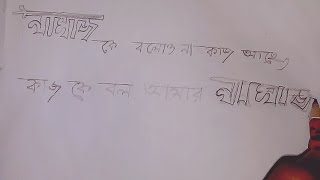 নামাজ কে বলোও না কাজ আছে
কাজ কে বল আমার নামাজ